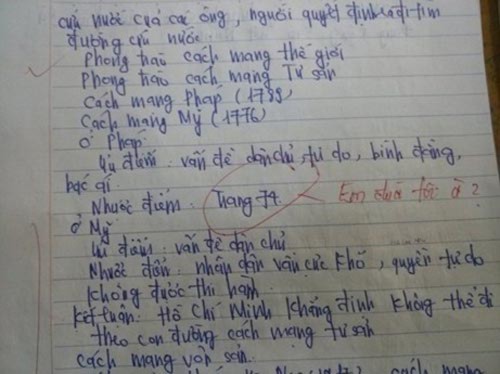 cứu nước của các ông, người quyết định ra đi tìm
đường cứu nước.
Phong trào cách mạng thế giới
Phong trào cách mạng Tư sản
Cách mạng Pháp (1789)
Cách mạng Mỹ (1776)
Ở Pháp
Ưu điểm: vấn đề dân chủ, tự do, bình đẳng,
bác ái.
Nhược điểm: Trang 74. Em đùa tôi à?
Ở Mỹ
Ưu điểm: vấn đề dân chủ
Nhược điểm: nhân dân vẫn cực khổ, quyền tự do
không được thi hành.
Kết luận: Hồ Chí Minh khẳng định không thể đi
theo con đường cách mạng tư sản
cách mạng vô sản.
cách mạng